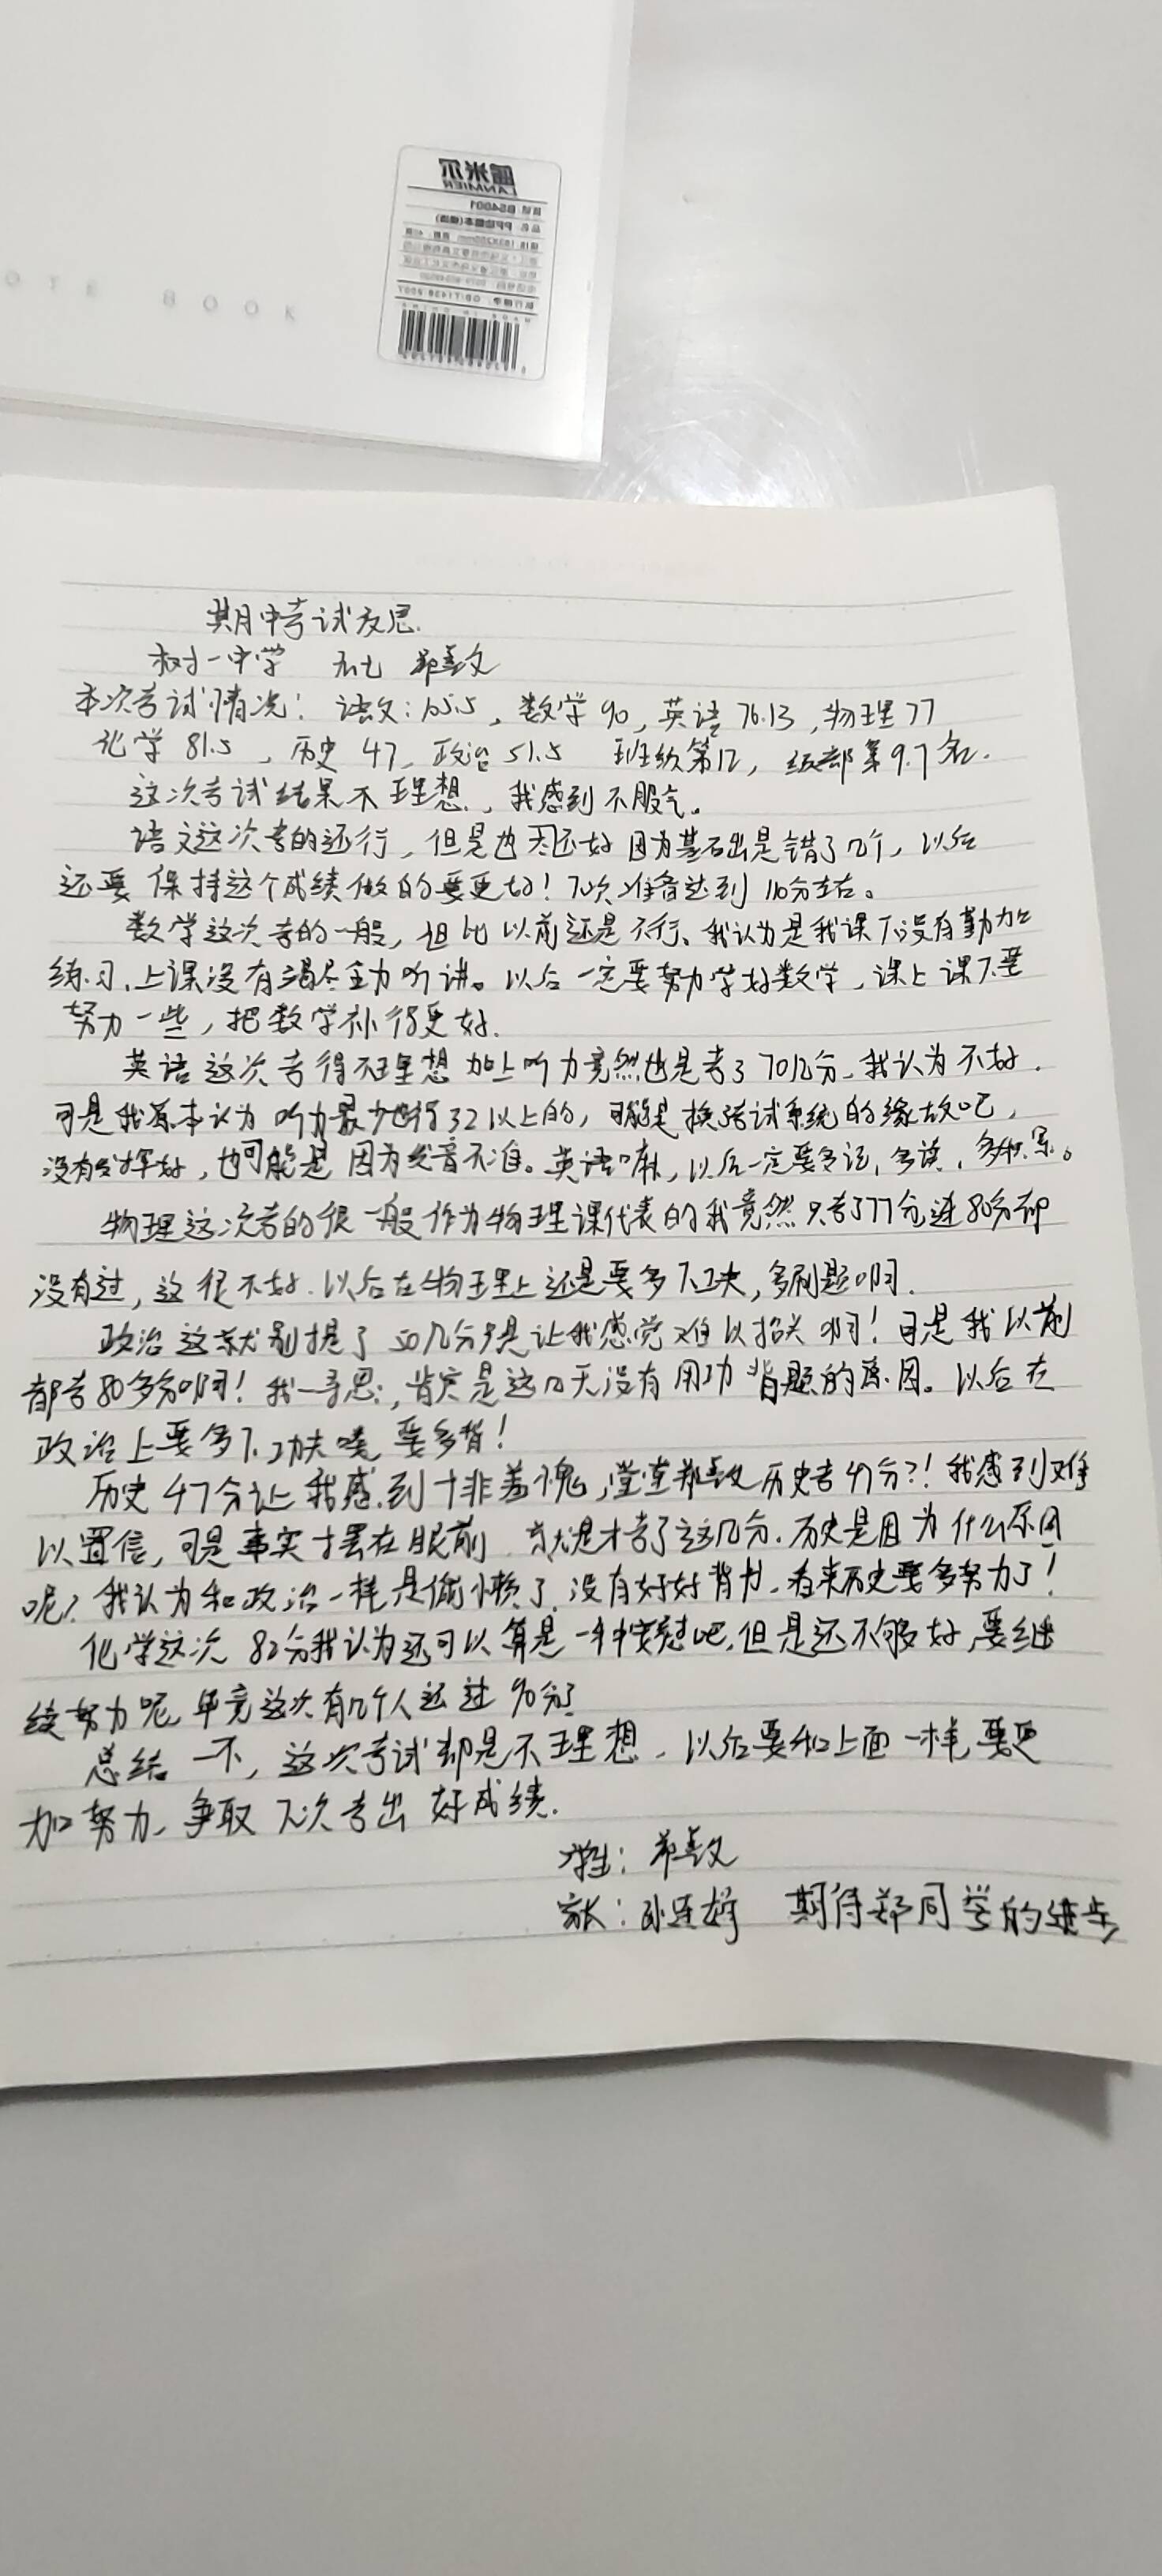 NOTE BOOK
LANMIER
BS4001
期中考试反思.
树一中学
本次考试情况:语文:105.5,数学90,英语76.13,物理77
化学81.5,历史47,政治51.5 班级第12,级部第97名.
这次考试结果不理想,我感到不服气。
语文这次考的还行,但是也不还好因为基础出是错了几个,以后
还要保持这个成绩做的要更好!下次准备达到110分左右。
数学这次考的一般,但比以前还是不行、我认为是我课下没有勤加
练习,上课没有竭尽全力听讲。以后一定要努力学好数学,课上课下要
努力一些,把数学补得更好.
英语这次考得不理想加上听力竟然也是考了70几分、我认为不好.
可是我原本认为听力最少也得32以上的,可能是换考试系统的缘故吧,
没有发挥好,也可能是因为发音不准。英语嘛,以后一定要多记,多读,多积累。
物理这次考的很一般作为物理课代表的我竟然只考了77分连80分都
没有过,这很不好.以后在物理上还是要多下功夫,多刷题啊.
政治这就别提了50几分步是让我感觉难以招架啊!可是我以前
都考80多分啊!我一寻思,肯定是这几天没有用功背题的原因。以后在
政治上要多下功夫喽,要多背!
历史47分让我感到十非羞愧,堂堂郑 历史考47分?!我感到难
以置信,可是事实才摆在眼前 就是才考了这几分.历史是因为什么原因
呢?我认为和政治一样是偷懒了,没有好好背书.看来历史要多努力了!
化学这次82分我认为还可以算是一种安慰吧,但是还不够好,要继
续努力呢,毕竟这次有几个人还过90分了
总结一下,这次考试却是不理想、以后要和上面一样,要更
加努力、争取下次考出好成绩.
学生:
家长:孙连婷 期待郑同学的进步